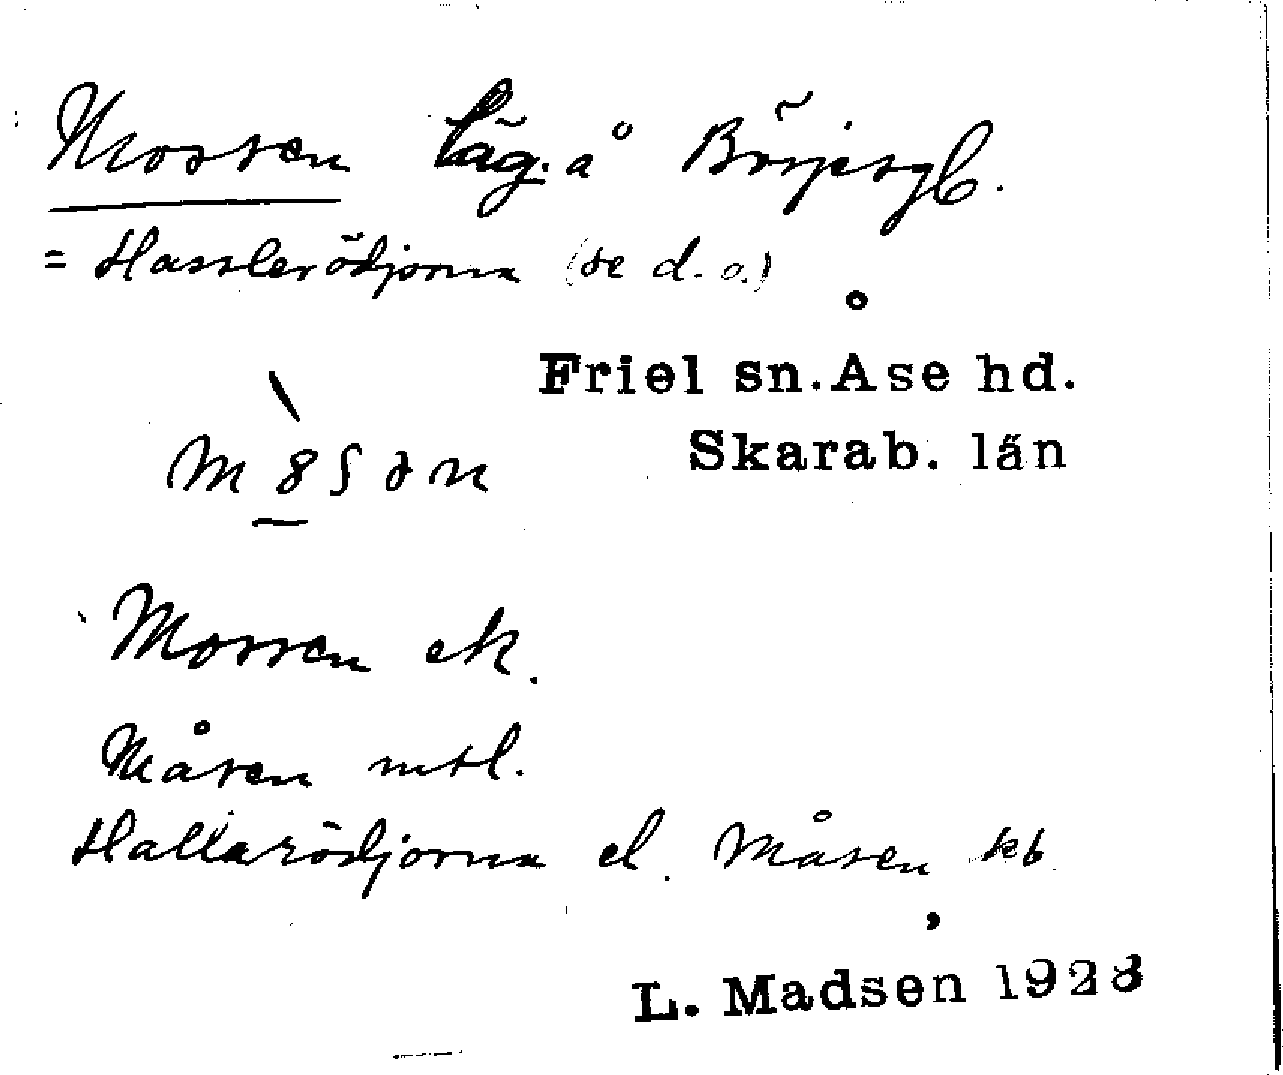 Mossen läg. å Börjesgb.
= Hasslerödjorna (se d.o.)
Friel sn. Åse hd.
Skarab. län
Mossen ek.
Måsen mtl.
Hallarödjorna el. Måsen kb
L. Madsen 1928